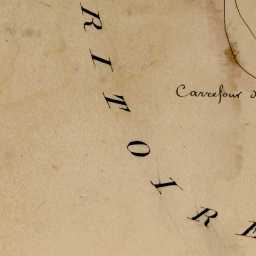 RITOIRE
Carrefour d